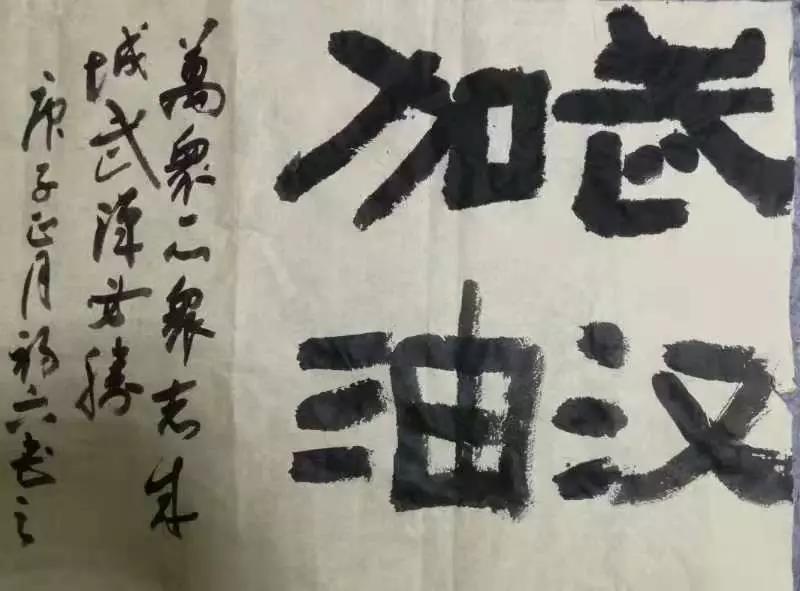 武汉
加油
萬衆一心衆志成
城武漢必勝
庚子正月初六书之